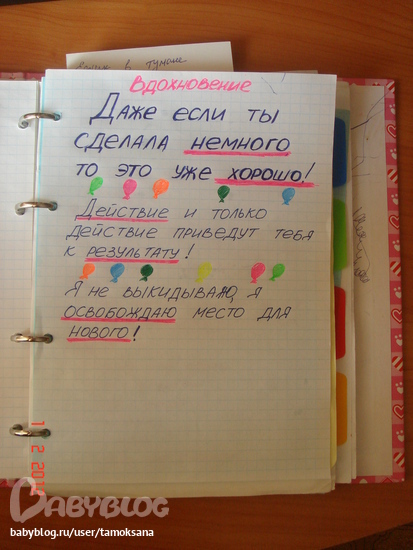 Вдохновение
Даже если ты
сделала немного
то это уже хорошо!
Действие и только
действие приведут тебя
к результату!
Я не выкидываю, я
освобождаю место для
нового!
BABYBLOG
babyblog.ru/user/tamoksana